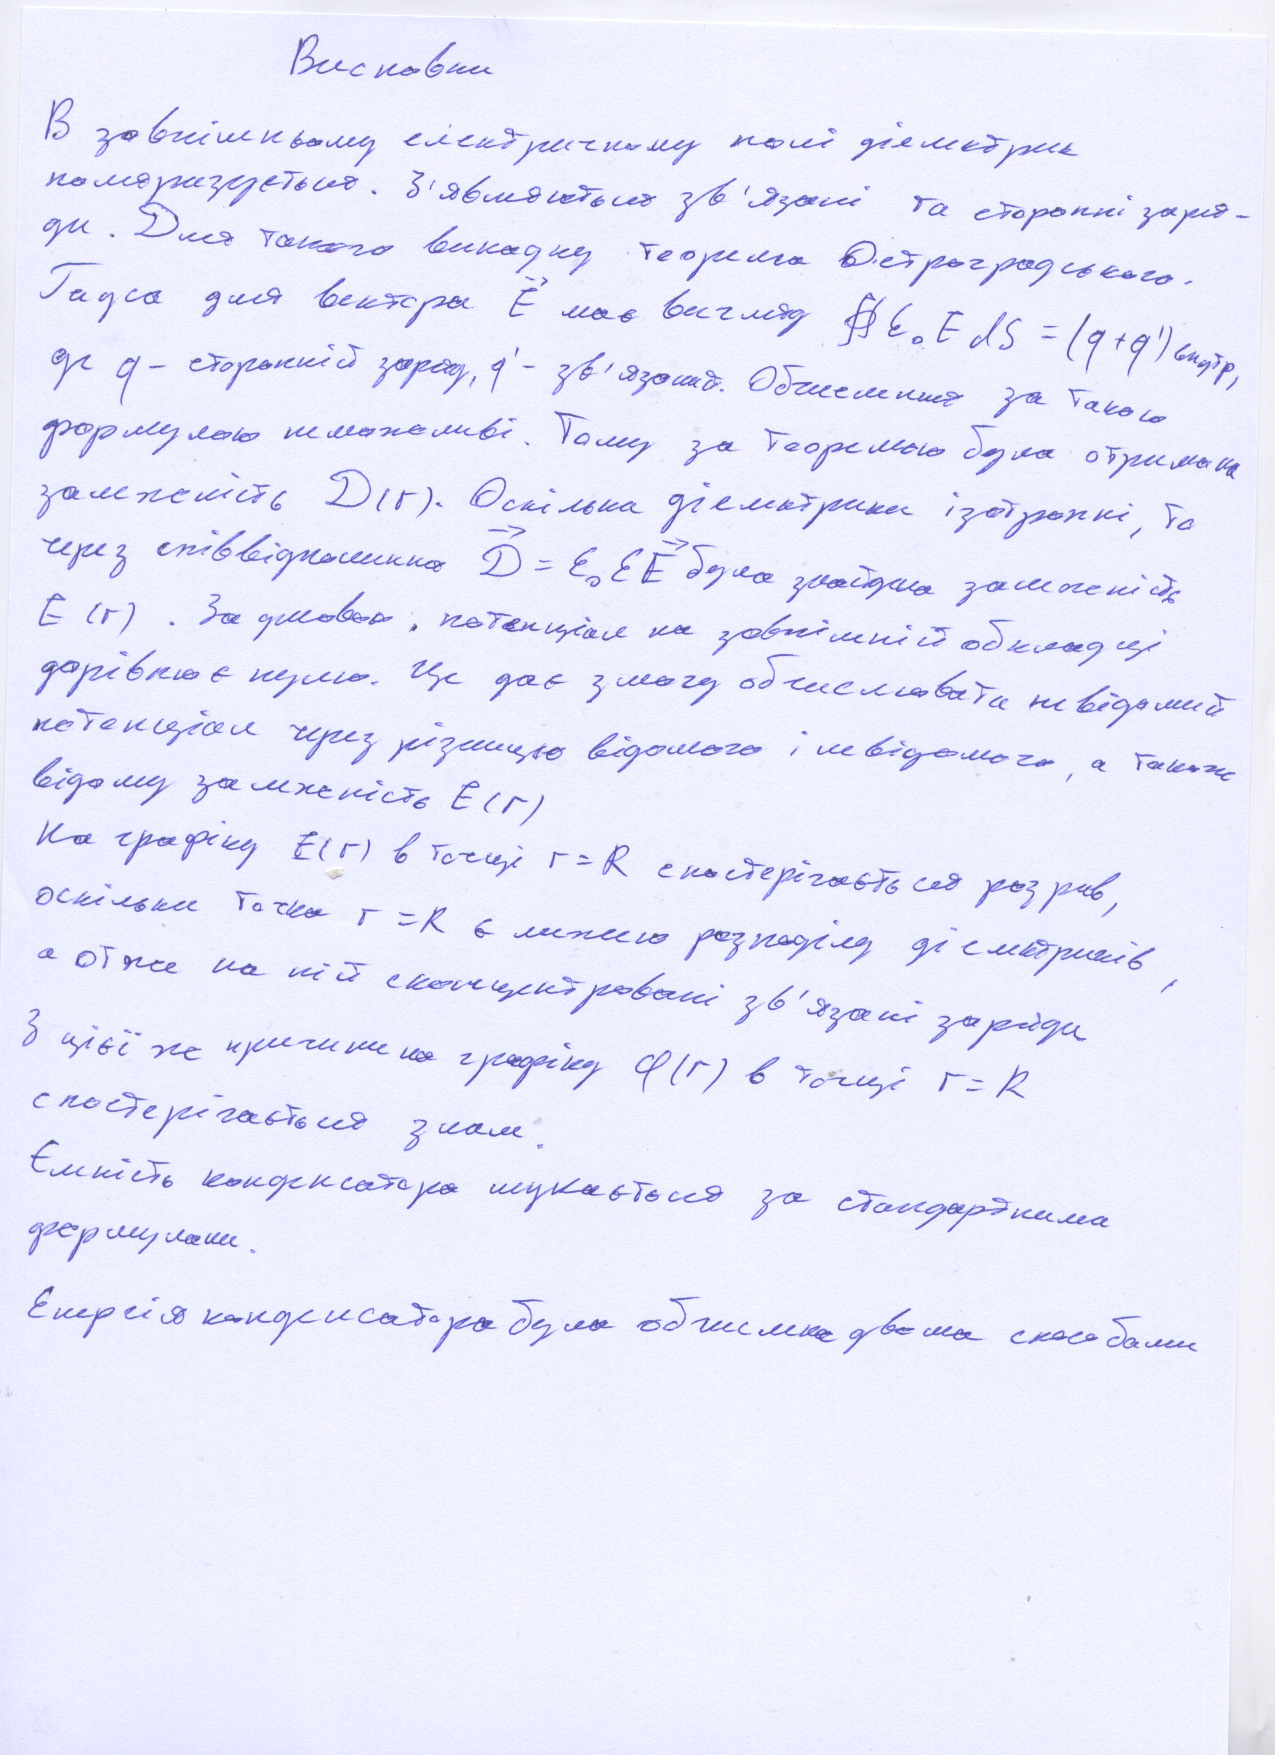 Висновки
В зовнішньому електричному полі діелектрик
поляризується. З'являються зв'язані та сторонні заря-
ди. Для такого випадку теорема Остроградського.
Гауса для вектора E⃗ має вигляд ∯ε₀EdS = (q+q')внутр,
де q – сторонній заряд, q' – зв'язаний. Обчислення за такою
формулою неможливі. Тому за теоремою була отримана
залежність D(r). Оскільки діелектрики ізотропні, то
через співвідношення D⃗ = ε₀εE⃗ була знайдена залежність
E(r). За умовою, потенціал на зовнішній обкладці
дорівнює нулю. Це дає змогу обчислювати невідомий
потенціал через різницю відомого і невідомого, а також
відому залежність E(r)
На графіку E(r) в точці r = R спостерігається розрив,
оскільки точка r = R є межею розподілу діелектриків,
а отже на ній сконцентровані зв'язані заряди
З цієї ж причини на графіку φ(r) в точці r = R
спостерігається злам.
Ємність конденсатора шукається за стандартними
формулами.
Енергія конденсатора була обчислена двома способами